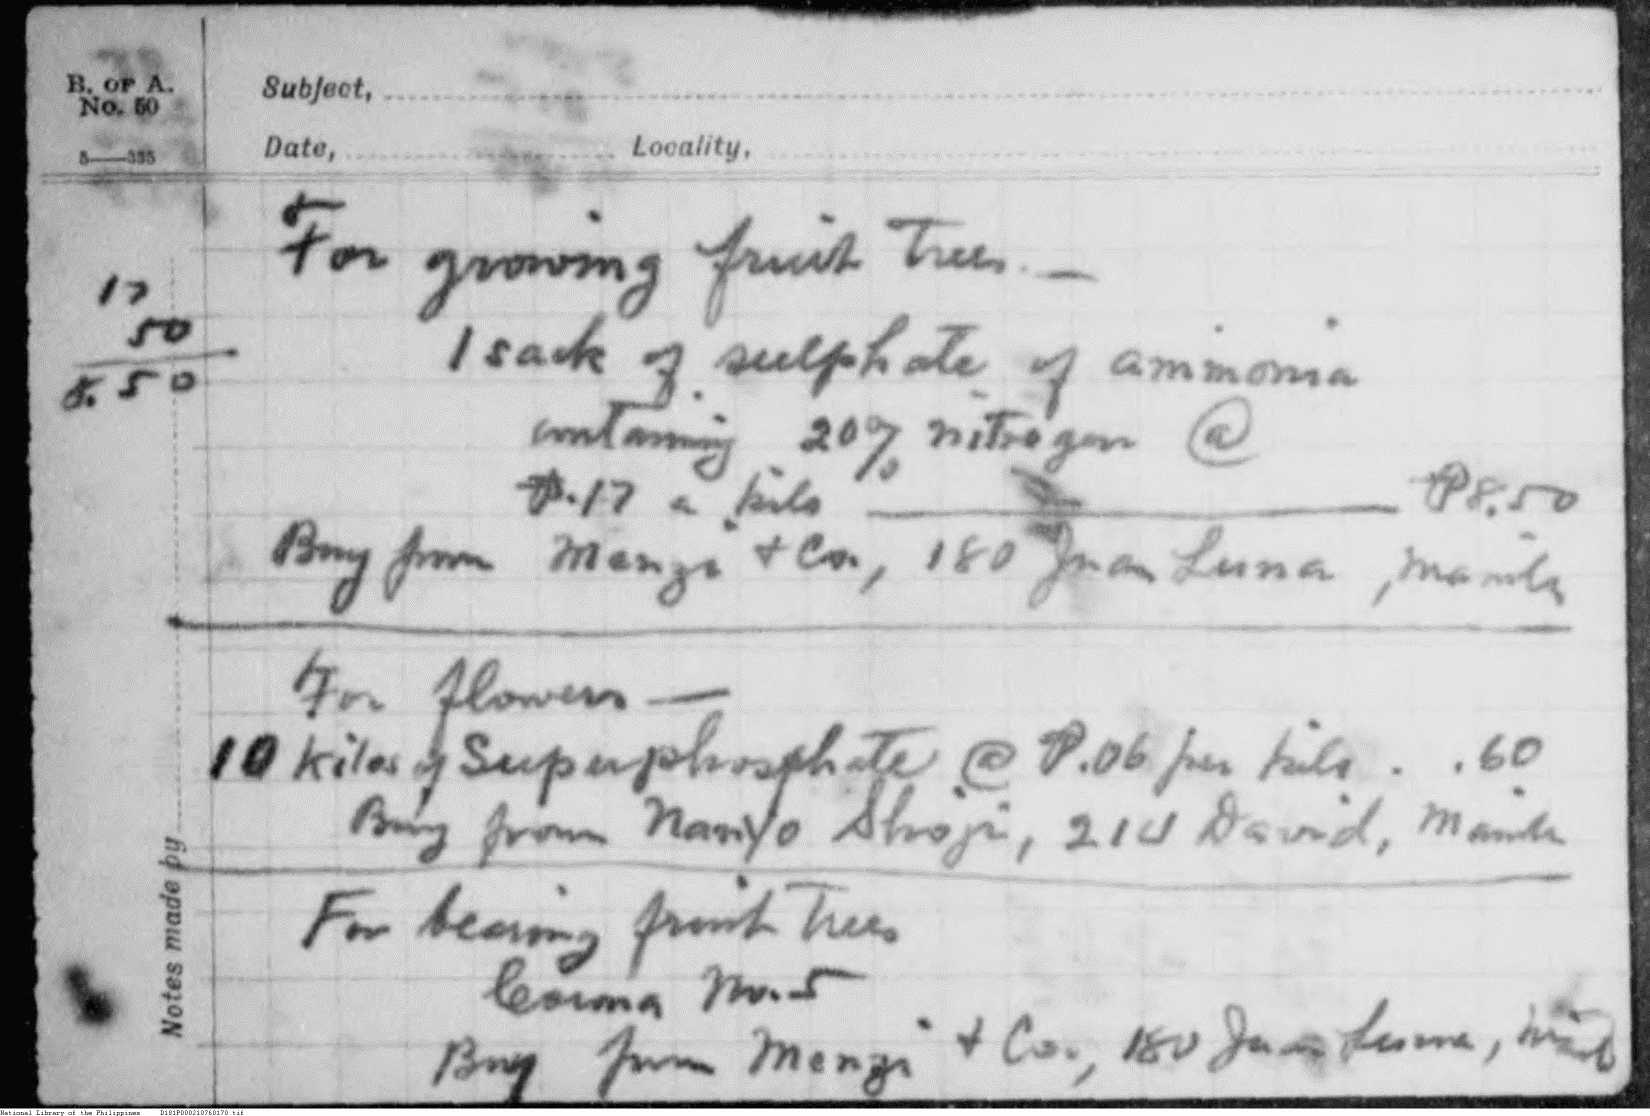 B. OF A.
No. 50
5—335
Subject,
Date, Locality,
For growing fruit trees. —
17
50
8.50
1 sack of sulphate of ammonia
containing 20% nitrogen @
₱.17 a kilo ₱8.50
Buy from Menzi & Co., 180 Juan Luna, Manila
For flowers —
10 kilos of Superphosphate @ ₱.06 per kilo . .60
Buy from Nanyo Shoji, 214 David, Manila
For bearing fruit trees
Corona No. 5
Buy from Menzi & Co., 180 Juan Luna, Manila
Notes made by
National Library of the Philippines D101P000210760170.tif